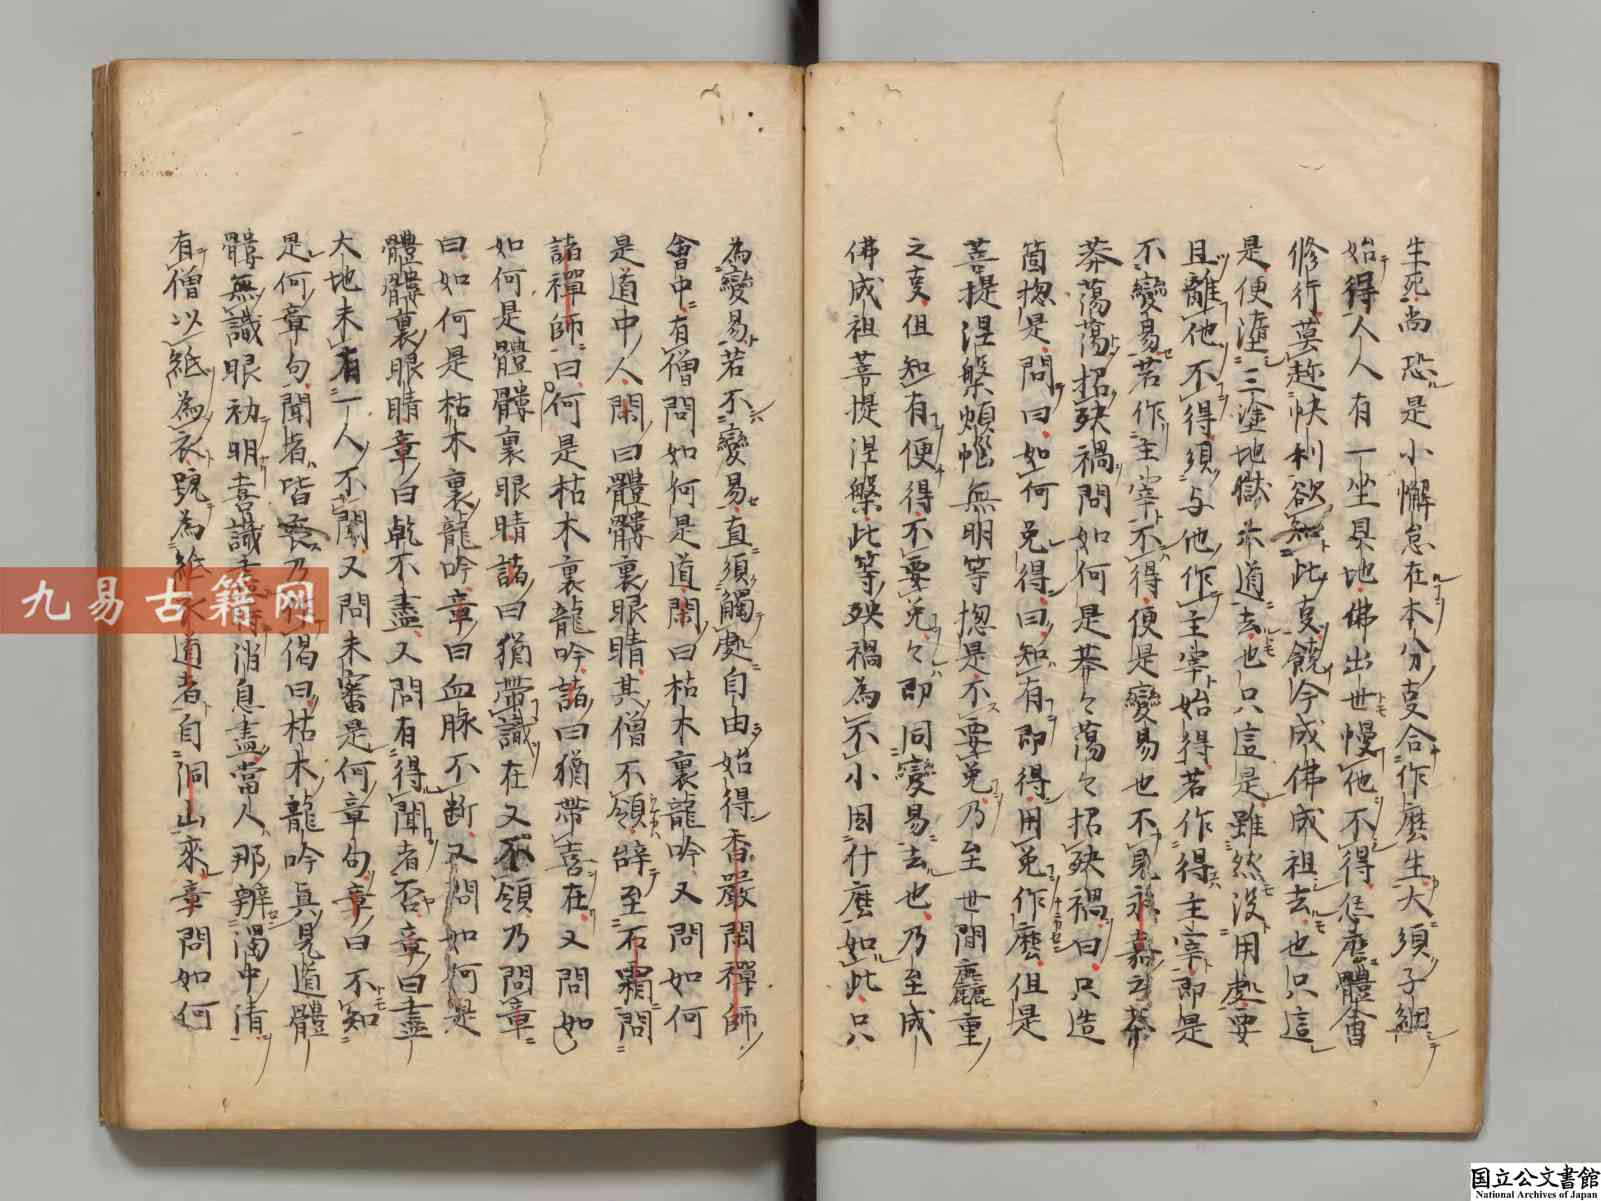 生死尚恐是小懈怠在本分㕝合作麽生大須子細
始得人人有一坐具地佛出世慢他不得恁麽體會
修行莫趂快利欲知此㕝饒今成佛成祖去也只這
是便墮三塗地獄六道去也只這是雖然没用處要
且離他不得須与他作主宰始得若作得主宰即是
不變易若作主宰不得便是變易也不見永嘉云莽
莽蕩蕩招殃禍問如何是莽々蕩々招殃禍曰只造
箇揔是問曰如何免得曰知有即得用免作麽但是
菩提涅槃煩惱無明等揔是不要免乃至世間麤重
之㕝但知有便得不要免々即同變易去也乃至成
佛成祖菩提涅槃此等殃禍為不小因什麽如此只
為變易若不變易直須觸處自由始得香嚴閑禪師
會中有僧問如何是道閑曰枯木裏龍吟又問如何
是道中人閑曰髑髏裏眼睛其僧不領辞至石霜問
諸禪師曰何是枯木裏龍吟諸曰猶帶喜在又問如
如何是髑髏裏眼睛諸曰猶帶識在又不領乃問章
曰如何是枯木裏龍吟章曰血脉不断又問如何是
髑髏裏眼睛章曰乾不盡又問有得聞者否章曰盡
大地未有一人不聞又問未審是何章句章曰不知
是何章句聞者皆喪乃偈曰枯木龍吟真見道髑
髏無識眼初明喜識消息盡當人那辨濁中清
有僧以紙為衣號為紙道者自洞山來章問如何
九易古籍网
国立公文書館
National Archives of Japan